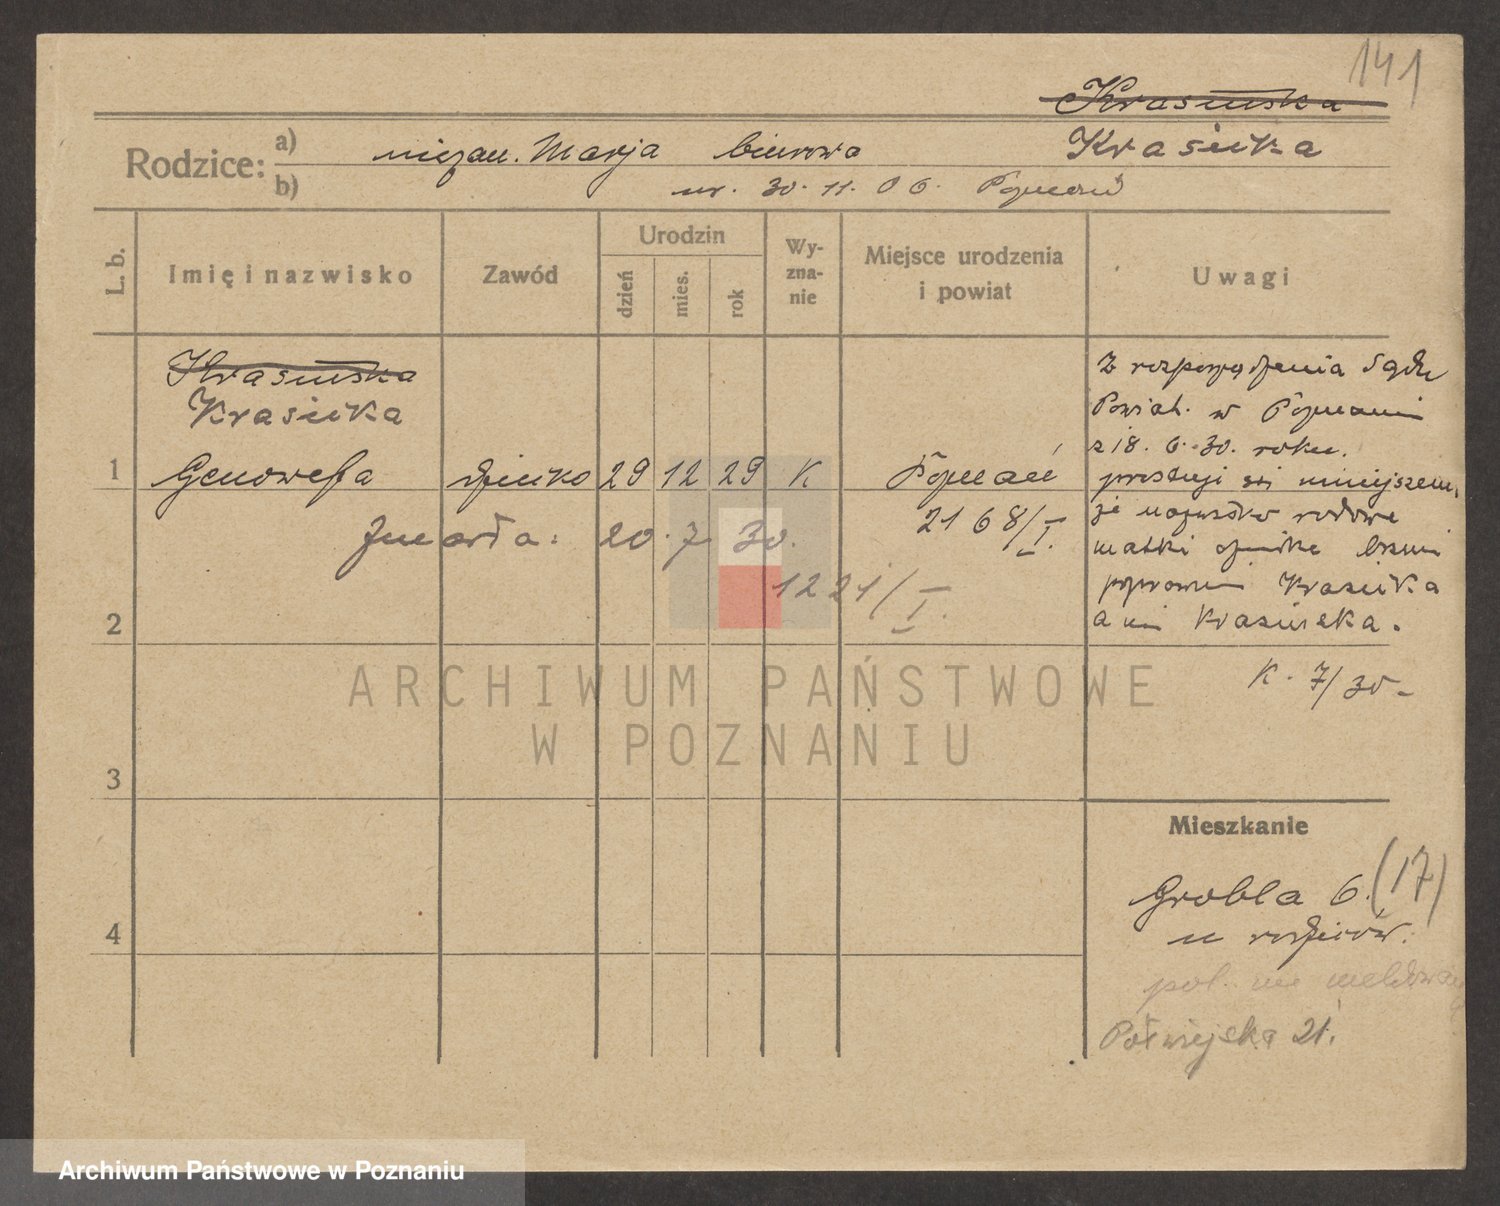 141
Krasińska
Rodzice:
a) niezam. Marja biurowa Krasicka
b) ur. 30. 11. 06. Poznań
L. b.
Imię i nazwisko
Zawód
Urodzin
dzień
mies.
rok
Wy-
zna-
nie
Miejsce urodzenia
i powiat
Uwagi
Krasińska
Krasicka
1 Genowefa dziecko 29 12 29 K Poznań
2168/I.
Zmarła: 20. 7 30.
1221/I.
2
3
4
Z rozporządzenia Sądu
Powiat. w Poznaniu
z 18. 6. 30. roku.
prostuje się niniejszem,
że nazwisko rodowe
matki dziecka brzmi
poprawnie Krasicka
a nie Krasińska.
K. 7/30-
Mieszkanie
Grobla 6. (17)
u rodziców.
pol. nie meldowany
Półwiejska 21.
ARCHIWUM PAŃSTWOWE
W POZNANIU
Archiwum Państwowe w Poznaniu